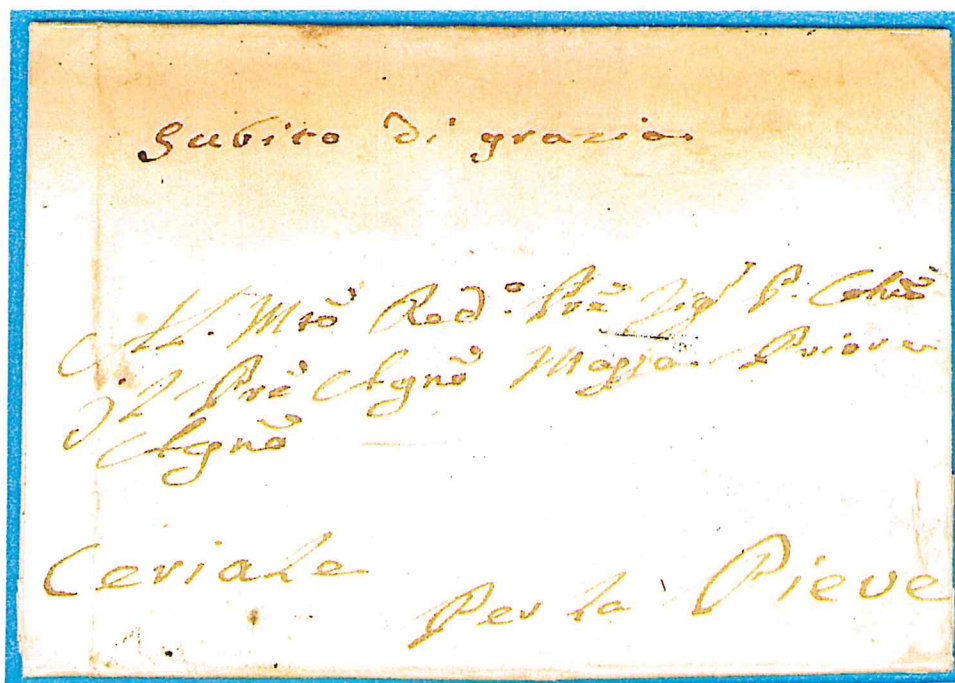 Subito di grazia
Al. Mtõ Redᵒ. Prẽ Sigʳ P.
Prẽ Agnõ Maglia Priore
Agnõ
Ceriale
Per la Pieve